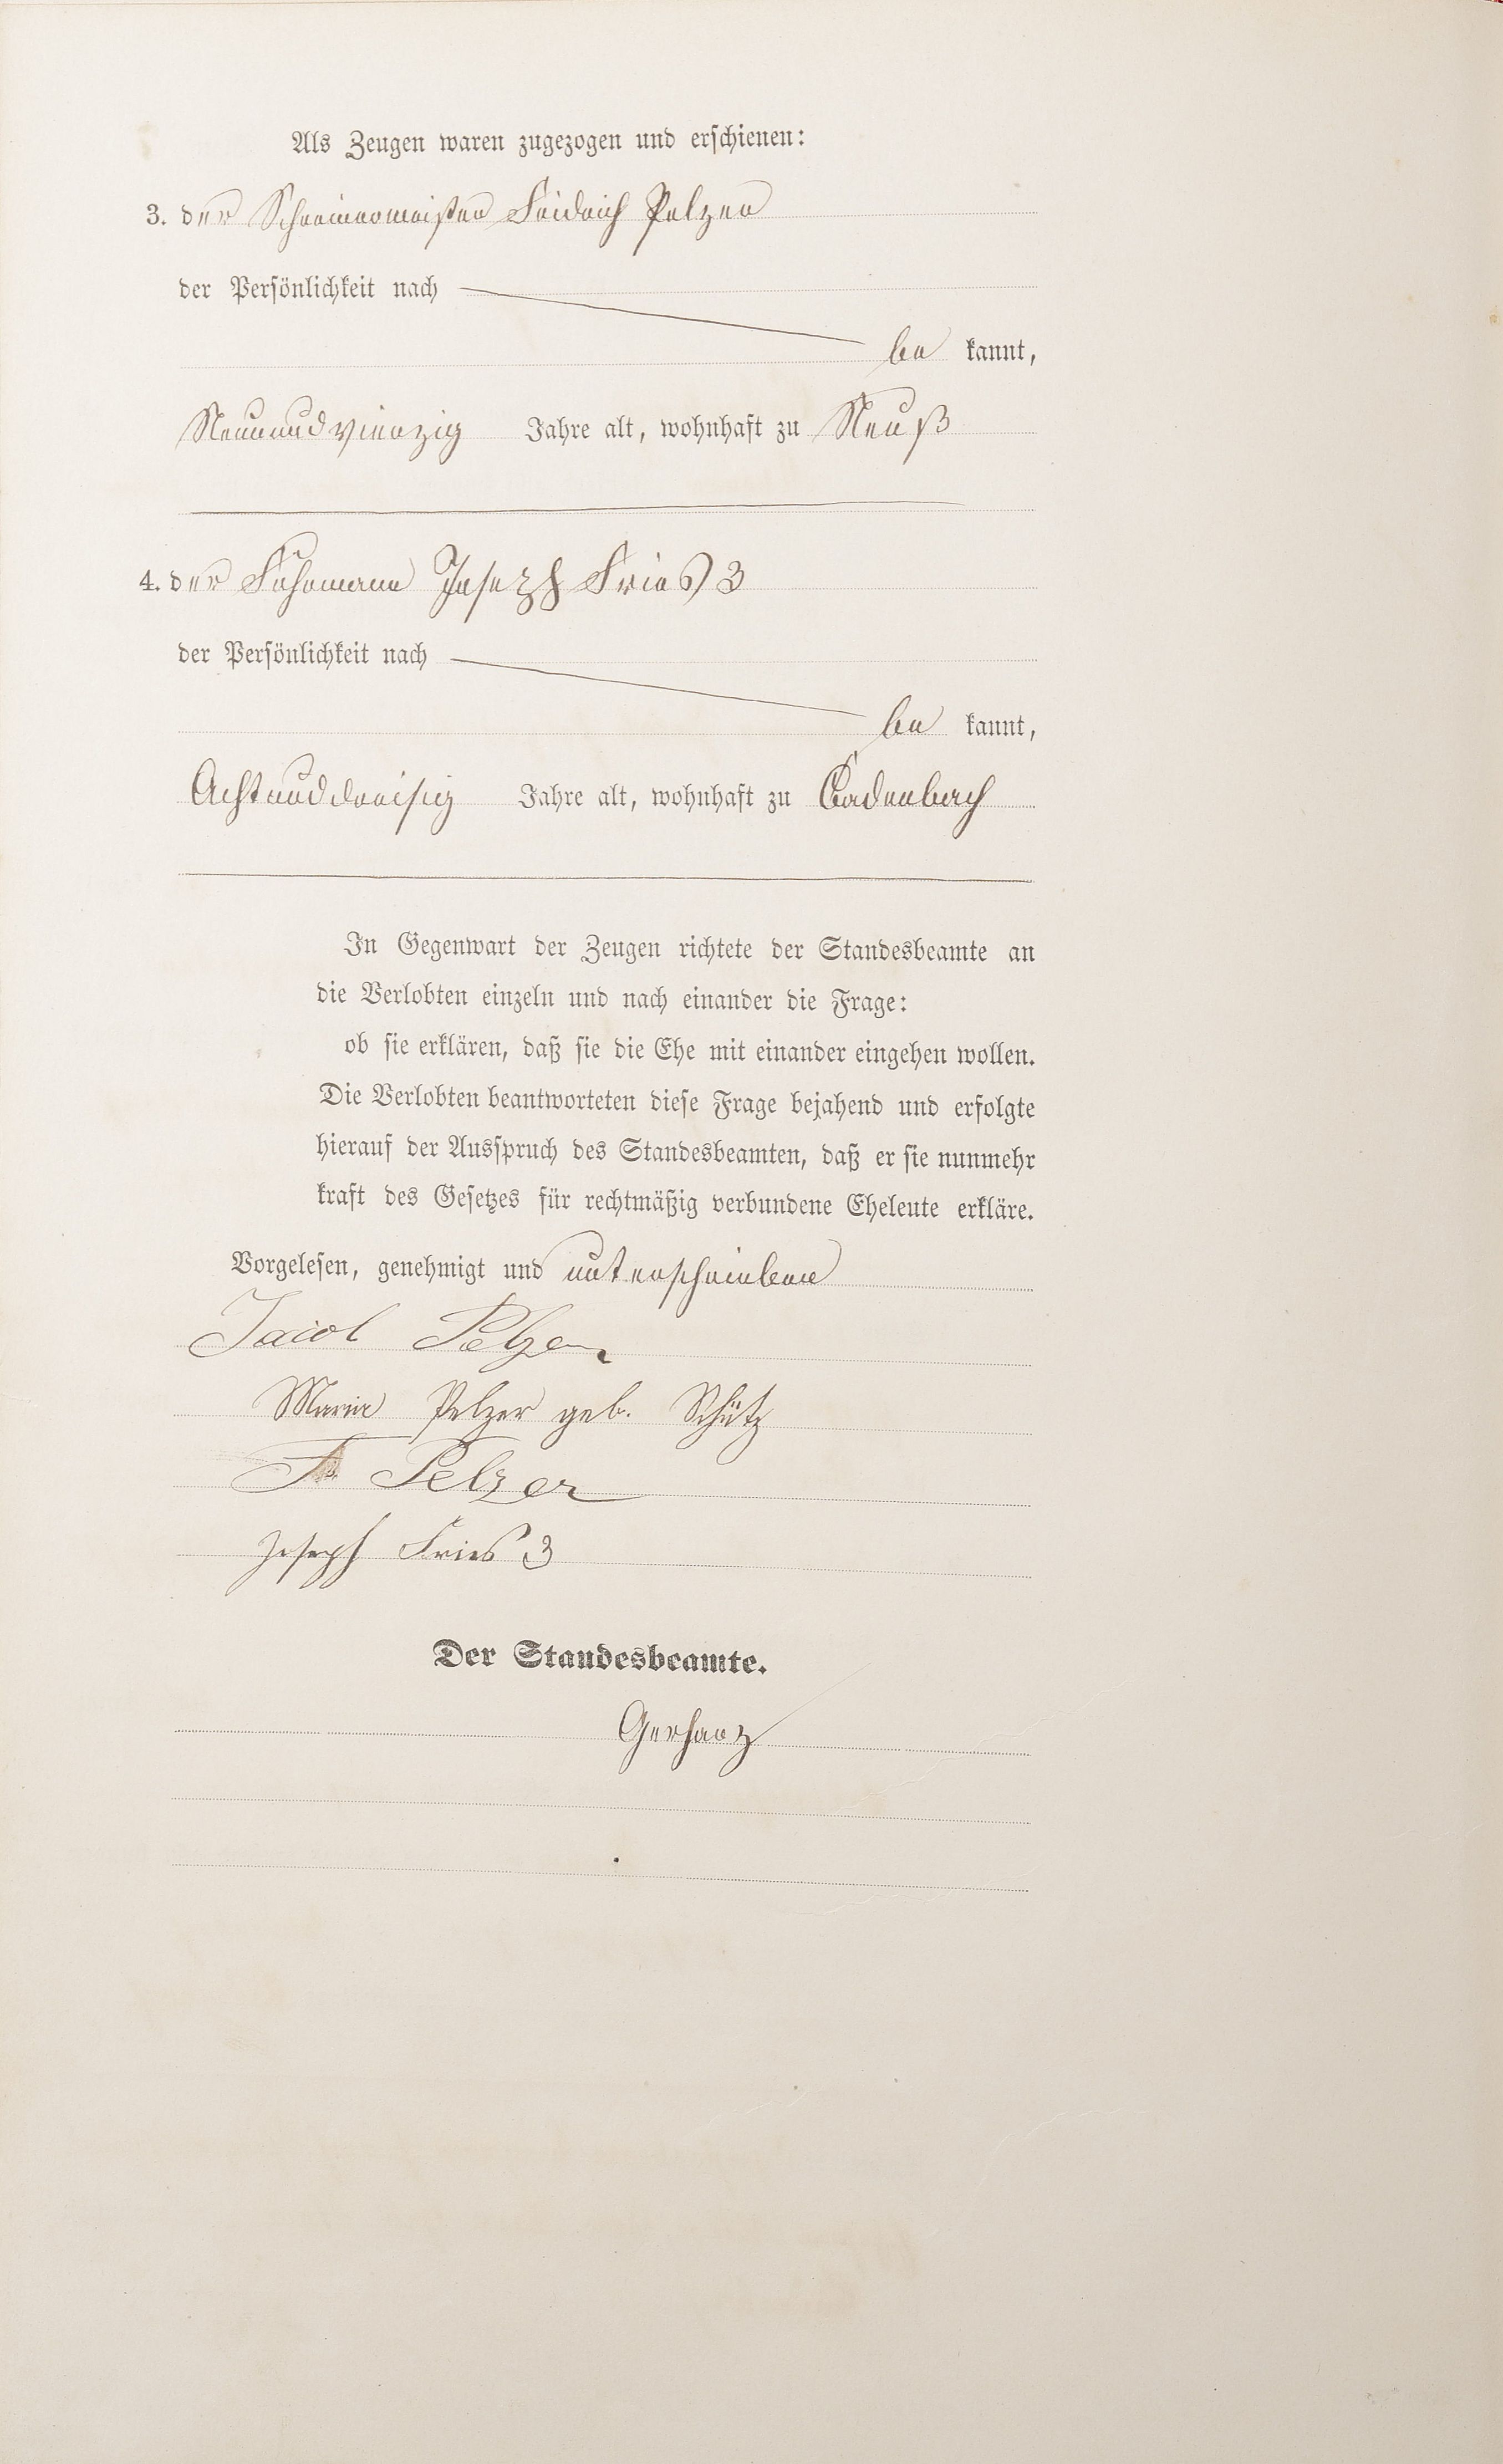 Als Zeugen waren zugezogen und erschienen:
3. der Schreinermeister Fridrich Pelzer
der Persönlichkeit nach
be kannt,
Neunundvierzig Jahre alt, wohnhaft zu Neuß
4. der Fuhrmann Joseph Fries 3
der Persönlichkeit nach
be kannt,
Achtunddreisig Jahre alt, wohnhaft zu Cadenbach
In Gegenwart der Zeugen richtete der Standesbeamte an
die Verlobten einzeln und nach einander die Frage:
ob sie erklären, daß sie die Ehe mit einander eingehen wollen.
Die Verlobten beantworteten diese Frage bejahend und erfolgte
hierauf der Ausspruch des Standesbeamten, daß er sie nunmehr
kraft des Gesetzes für rechtmäßig verbundene Eheleute erkläre.
Vorgelesen, genehmigt und unterschrieben
Jacob Pelzer
Maria Pelzer geb. Schütz
Fr Pelzer
Joseph Fries 3
Der Standesbeamte.
Gerharz